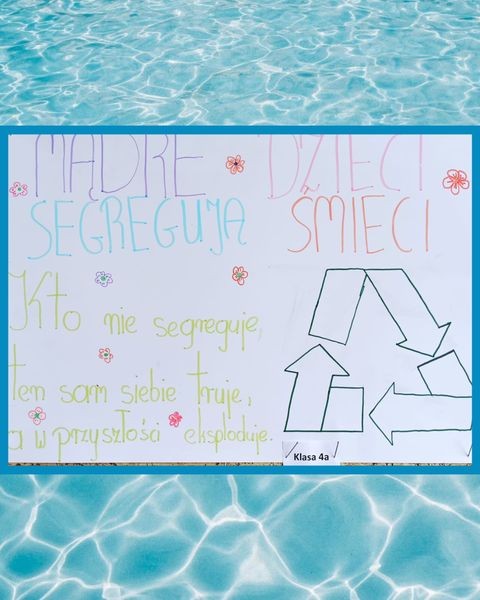 MĄDRE DZIECI
SEGREGUJĄ ŚMIECI
Kto nie segreguje,
ten sam siebie truje,
a w przyszłości eksploduje.
Klasa 4a